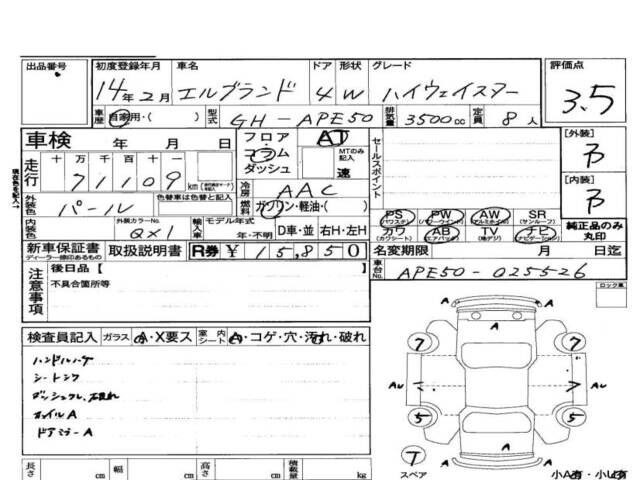 出品番号 初度登録年月 車名 ドア 形状 グレード 評価点
14年2月 エルグランド 4 W ハイウェイスター 3.5
車歴 自家用・( ) 型式 GH-APE50 排気量 3500cc 定員 8人
車検 年 月 日 フロア・コラム・ダッシュ AT MTのみ記入 速 セールスポイント [外装]
現在色を記入→
走行 十万千百十一 71109 km 冷房 AAC [内装]
外装色 パール 色替車は色替と記入 燃料 ガソリン・軽油・( ) PS (パワステ) PW (パワーウインド) AW (アルミホイル) SR (サンルーフ)
内装色 外装カラーNo. QX1 輸入車 モデル年式 年・不明 D車・並 右H・左H カワ (カワシート) AB (エアバッグ) TV (地デジ) ナビ (ナビゲーション) 純正品のみ丸印
新車保証書 ディーラー捺印あるもの 取扱説明書 R券 ¥15,850 名変期限 月 日迄
注意事項 後日品【 車台No. APE50-025526
不具合箇所等 ロック風
検査員記入 ガラス A・X要ス 室内シート A・コゲ・穴・汚れ・破れ
ハンドルハゲ
シート
ドアミラーA
7 7
Au Au
5 5
A A A A
T スペア
小A有・小U有
長さ cm 幅 cm 高さ cm 積載量 kg